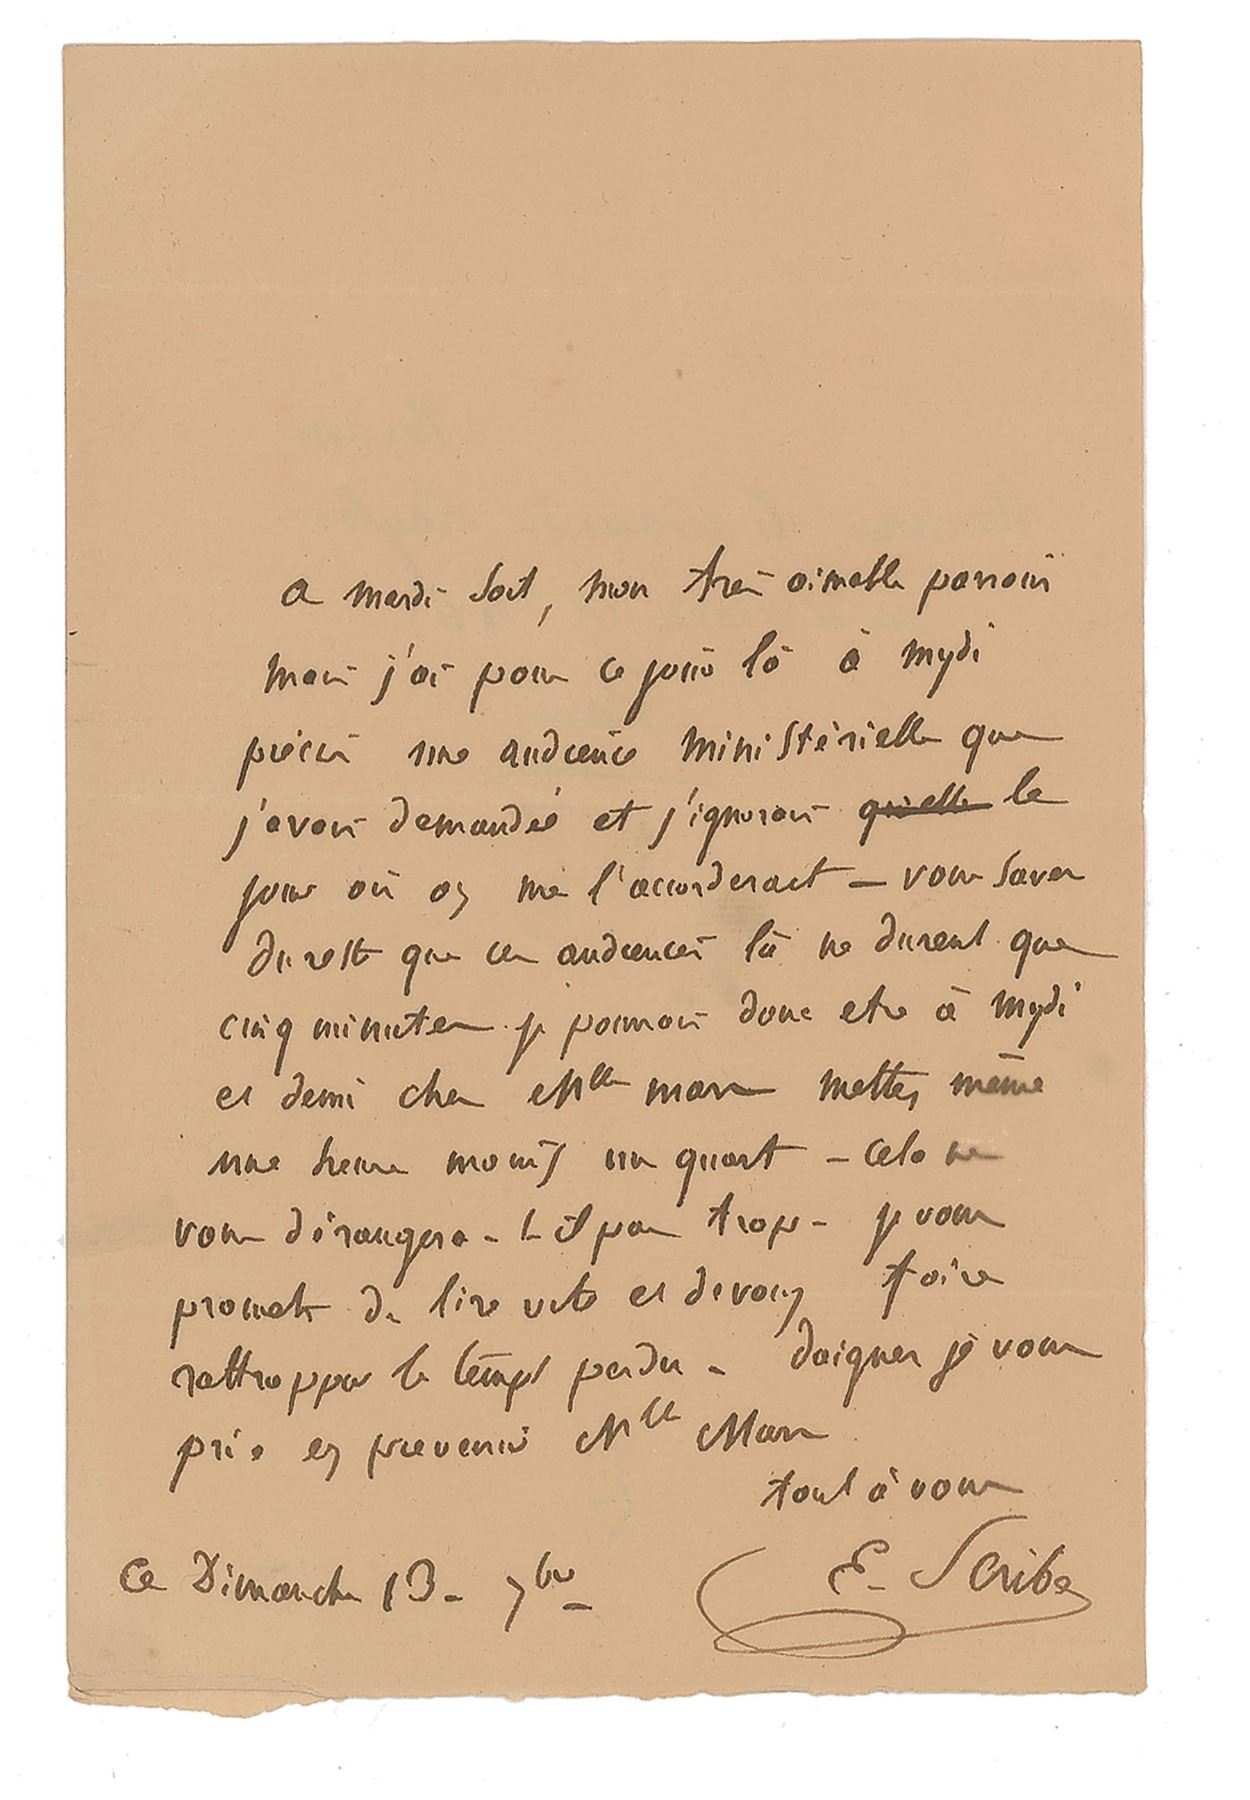 a mardi soit, mon très aimable parrain
mais j'ai pour ce jour là à mydi
précis une audience ministérielle que
j'avais demandée et j'ignorais quelle le
jour où on me l'accorderait – vous savez
du reste que ces audiences là ne durent que
cinq minutes je pourrais donc etre à mydi
et demi chez Mlle mars mettez même
une heure moins un quart – cela ne
vous dérangera-t-il pas trop – je vous
promets de lire vite et de vous faire
rattrapper le temps perdu – daignez je vous
prie en prevenir Mlle Mars
tout à vous
E. Scribe
Ce Dimanche 13 – 7bre